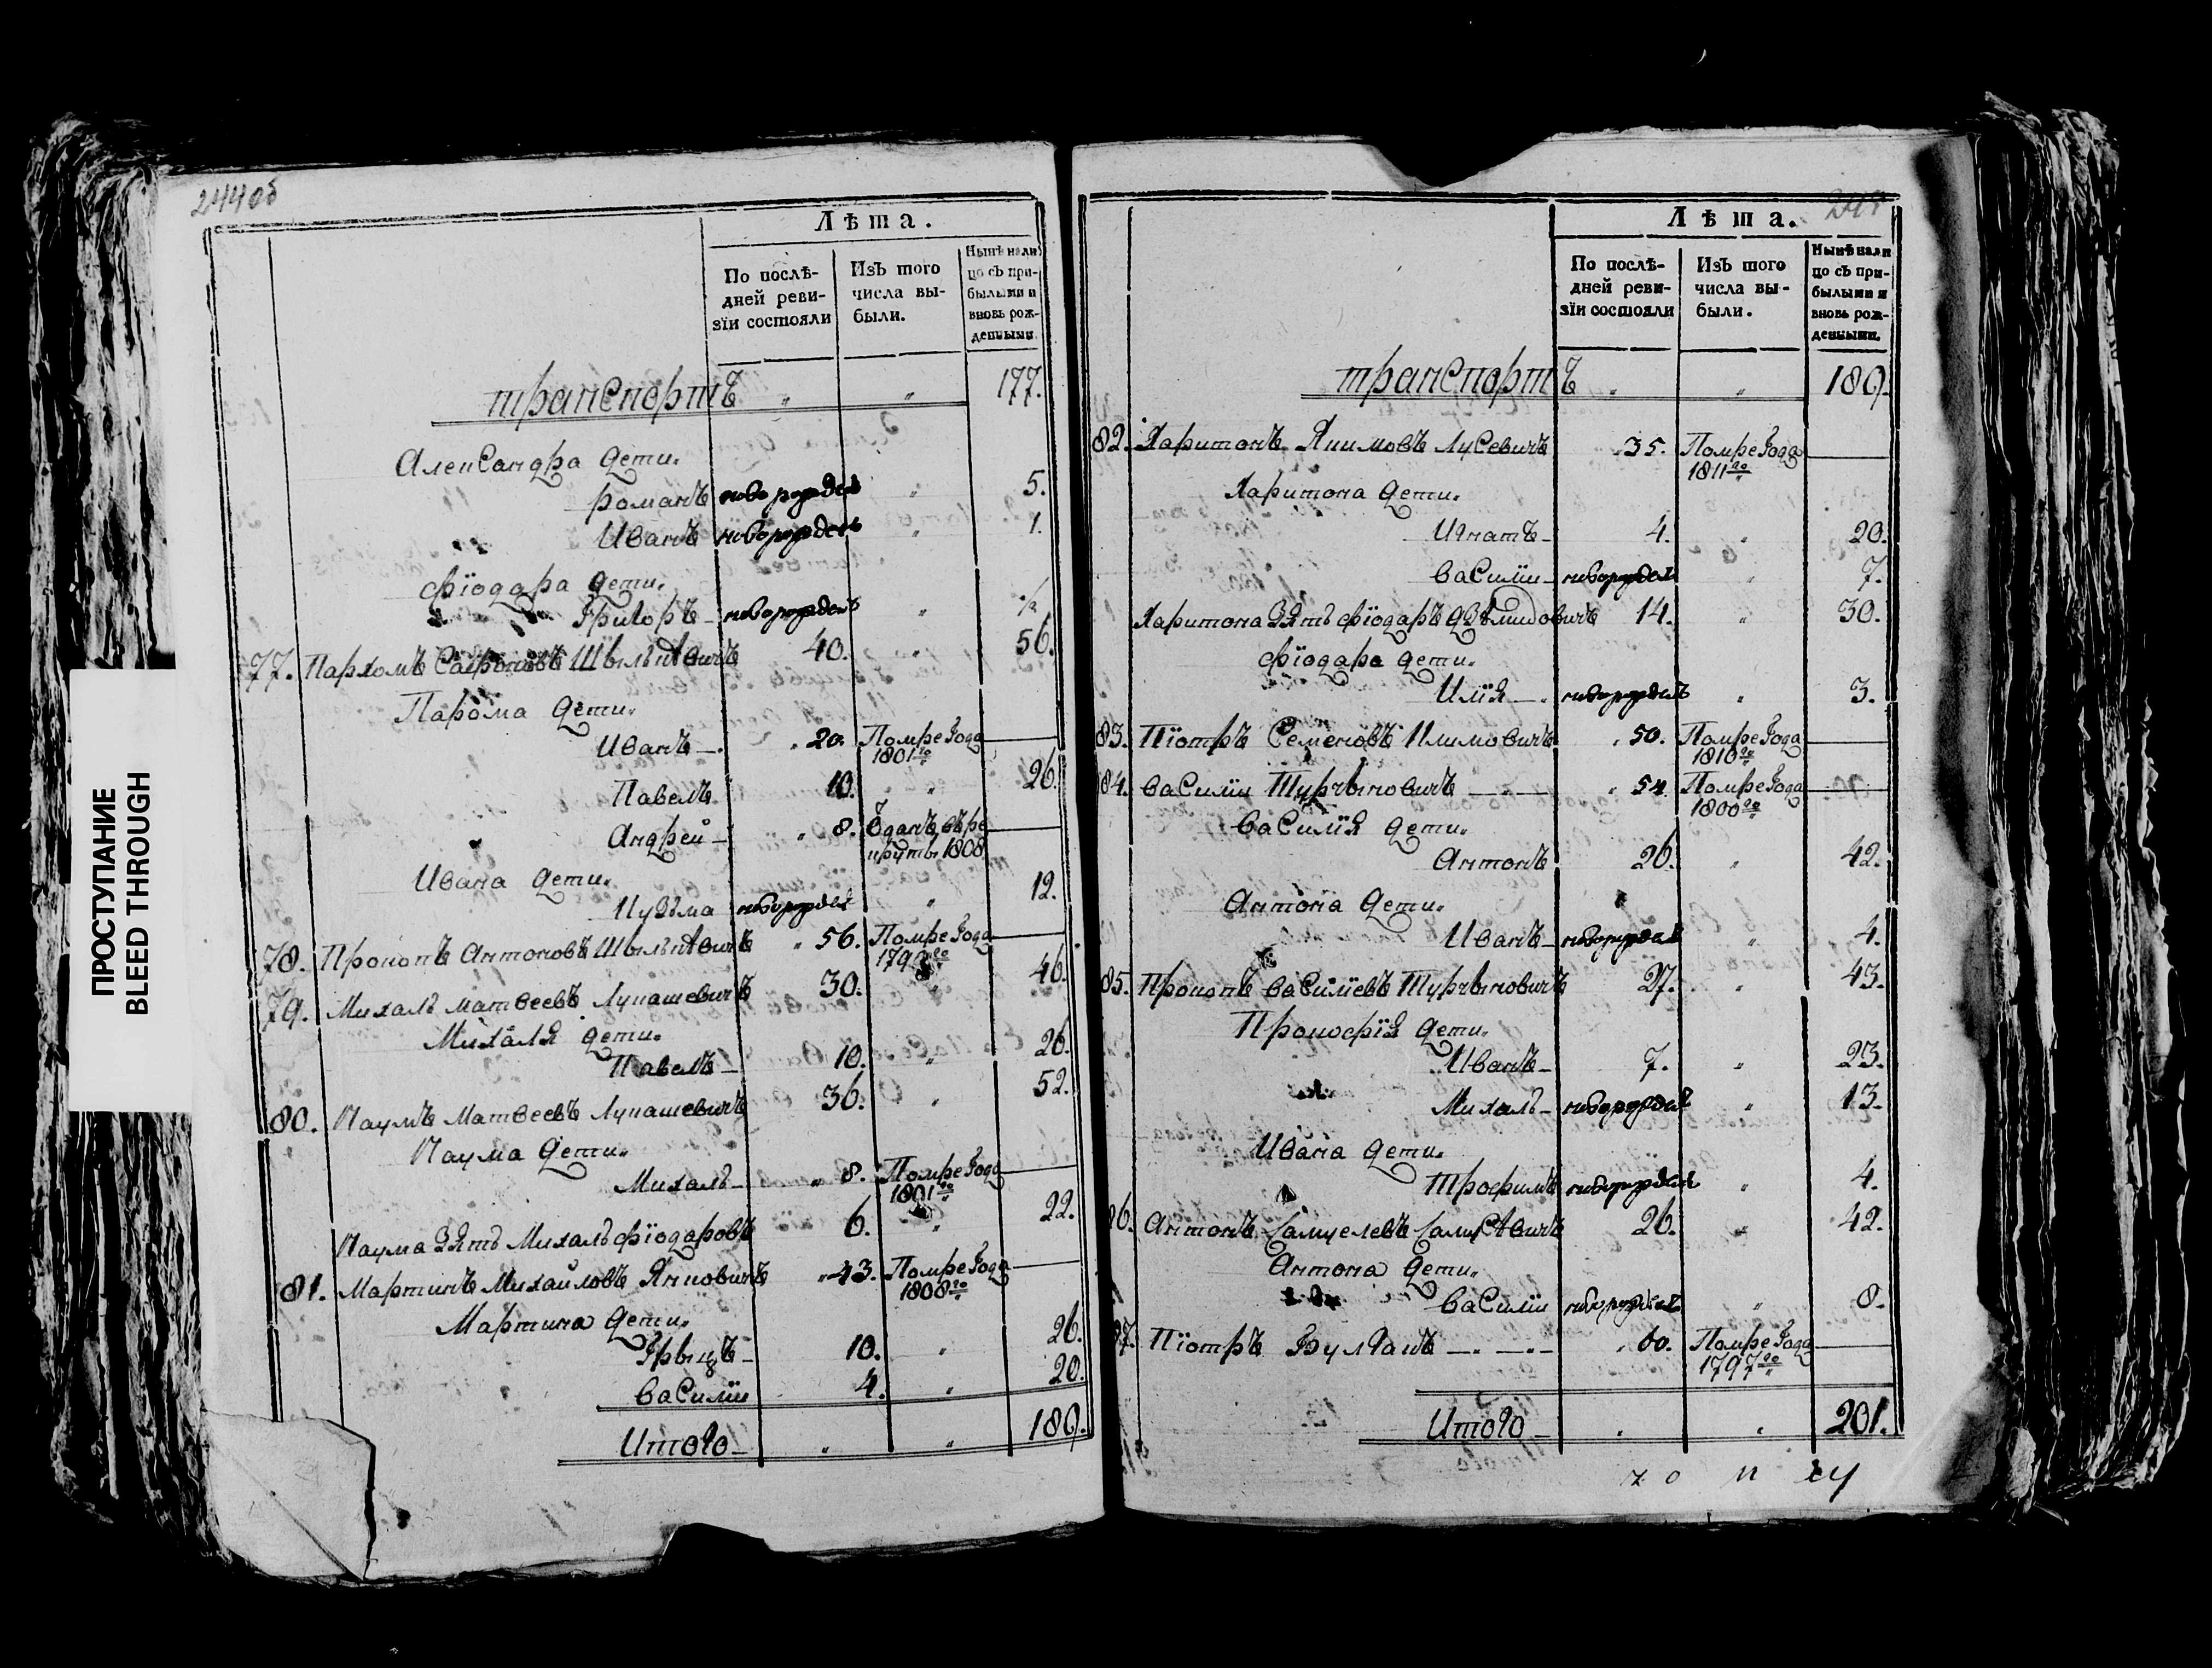 ПРОСТУПАНИЕ
BLEED THROUGH
244об
Лѣта.
По послѣ-
дней реви-
зїи состояли
Изъ того
числа вы-
были.
Нынѣ нали
цо съ при-
былыми и
вновь рож-
денными.
транспортъ " " 177.
Александра дети.
романъ новорожденъ " 5.
Иванъ новорожденъ " 1.
фїодара дети.
Григоръ - новорожденъ " ½
77. Пархомъ 40. " 56.
Пархома дети.
Иванъ - 20. Помре года
1801го
Павелъ 10. " 26.
Андрей - 8. Вданъ въ ре
круты 1808
Ивана дети.
Кузьма новорожденъ " 12.
78. Прокопъ Антоновъ 56. Помре года
79. Михалъ матвеевъ Лукашевичъ 30. " 46.
Михаля дети.
Павелъ - 10. " 26.
80. Наумъ Матвеевъ Лукашевичъ 36. " 52.
Наума дети.
Михалъ - 8. Помре года
1801го
Наума зять Михалъ фїодаровъ 6. " 22.
81. Мартинъ Михайловъ Янковичъ 43. Помре года
1808го
Мартина дети.
Грыцъ - 10. " 26.
василїи 4. " 20.
Итого - " " 189.
245
Лѣта.
По послѣ-
дней реви-
зїи состояли
Изъ того
числа вы-
были.
Нынѣ нали
цо съ при-
былыми и
вновь рож-
денными.
транспортъ " " 189.
82. Харитонъ Якимовъ Лусевичъ 35. Помре года
1811го
Харитона дети.
Игнатъ - 4. " 20.
василїи - новорожденъ " 7.
Харитона зять фїодаръ 14. " 30.
фїодара дети.
Илїя - новорожденъ " 3.
83. Пїотръ Семеновъ Климовичъ 50. Помре года
1810го
84. василїи Турчыновичъ 54 Помре года
1800го
василїя дети.
Антонъ 26. " 42.
Антона дети.
Иванъ - новорожденъ " 4.
85. Прокопъ василїевъ Турчыновичъ 27. " 43.
Прокофїя дети.
Иванъ - 7. " 23.
Михалъ - новорожденъ " 13.
Ивана дети.
Трофимъ новорожденъ " 4.
86. Антонъ Самуелевъ 26. " 42.
Антона дети.
василїи новорожденъ " 8.
87. Пїотръ 60. Помре года
1797го
Итого - " " 201.